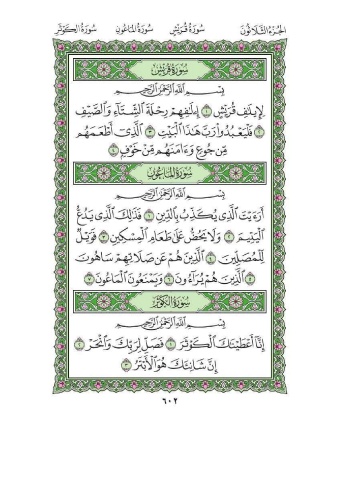 الجزء الثلاثون سورة قريش سورة الماعون سورة الكوثر
سورة قريش
بسم الله الرحمن الرحيم
لِإِيلَٰفِ قُرَيْشٍ ١ إِۦلَٰفِهِمْ رِحْلَةَ ٱلشِّتَآءِ وَٱلصَّيْفِ
٢ فَلْيَعْبُدُوا۟ رَبَّ هَٰذَا ٱلْبَيْتِ ٣ ٱلَّذِىٓ أَطْعَمَهُم
مِّن جُوعٍ وَءَامَنَهُم مِّنْ خَوْفٍۭ ٤
سورة الماعون
بسم الله الرحمن الرحيم
أَرَءَيْتَ ٱلَّذِى يُكَذِّبُ بِٱلدِّينِ ١ فَذَٰلِكَ ٱلَّذِى يَدُعُّ
ٱلْيَتِيمَ ٢ وَلَا يَحُضُّ عَلَىٰ طَعَامِ ٱلْمِسْكِينِ ٣ فَوَيْلٌ
لِّلْمُصَلِّينَ ٤ ٱلَّذِينَ هُمْ عَن صَلَاتِهِمْ سَاهُونَ
٥ ٱلَّذِينَ هُمْ يُرَآءُونَ ٦ وَيَمْنَعُونَ ٱلْمَاعُونَ ٧
سورة الكوثر
بسم الله الرحمن الرحيم
إِنَّآ أَعْطَيْنَٰكَ ٱلْكَوْثَرَ ١ فَصَلِّ لِرَبِّكَ وَٱنْحَرْ ٢
إِنَّ شَانِئَكَ هُوَ ٱلْأَبْتَرُ ٣
٦٠٢